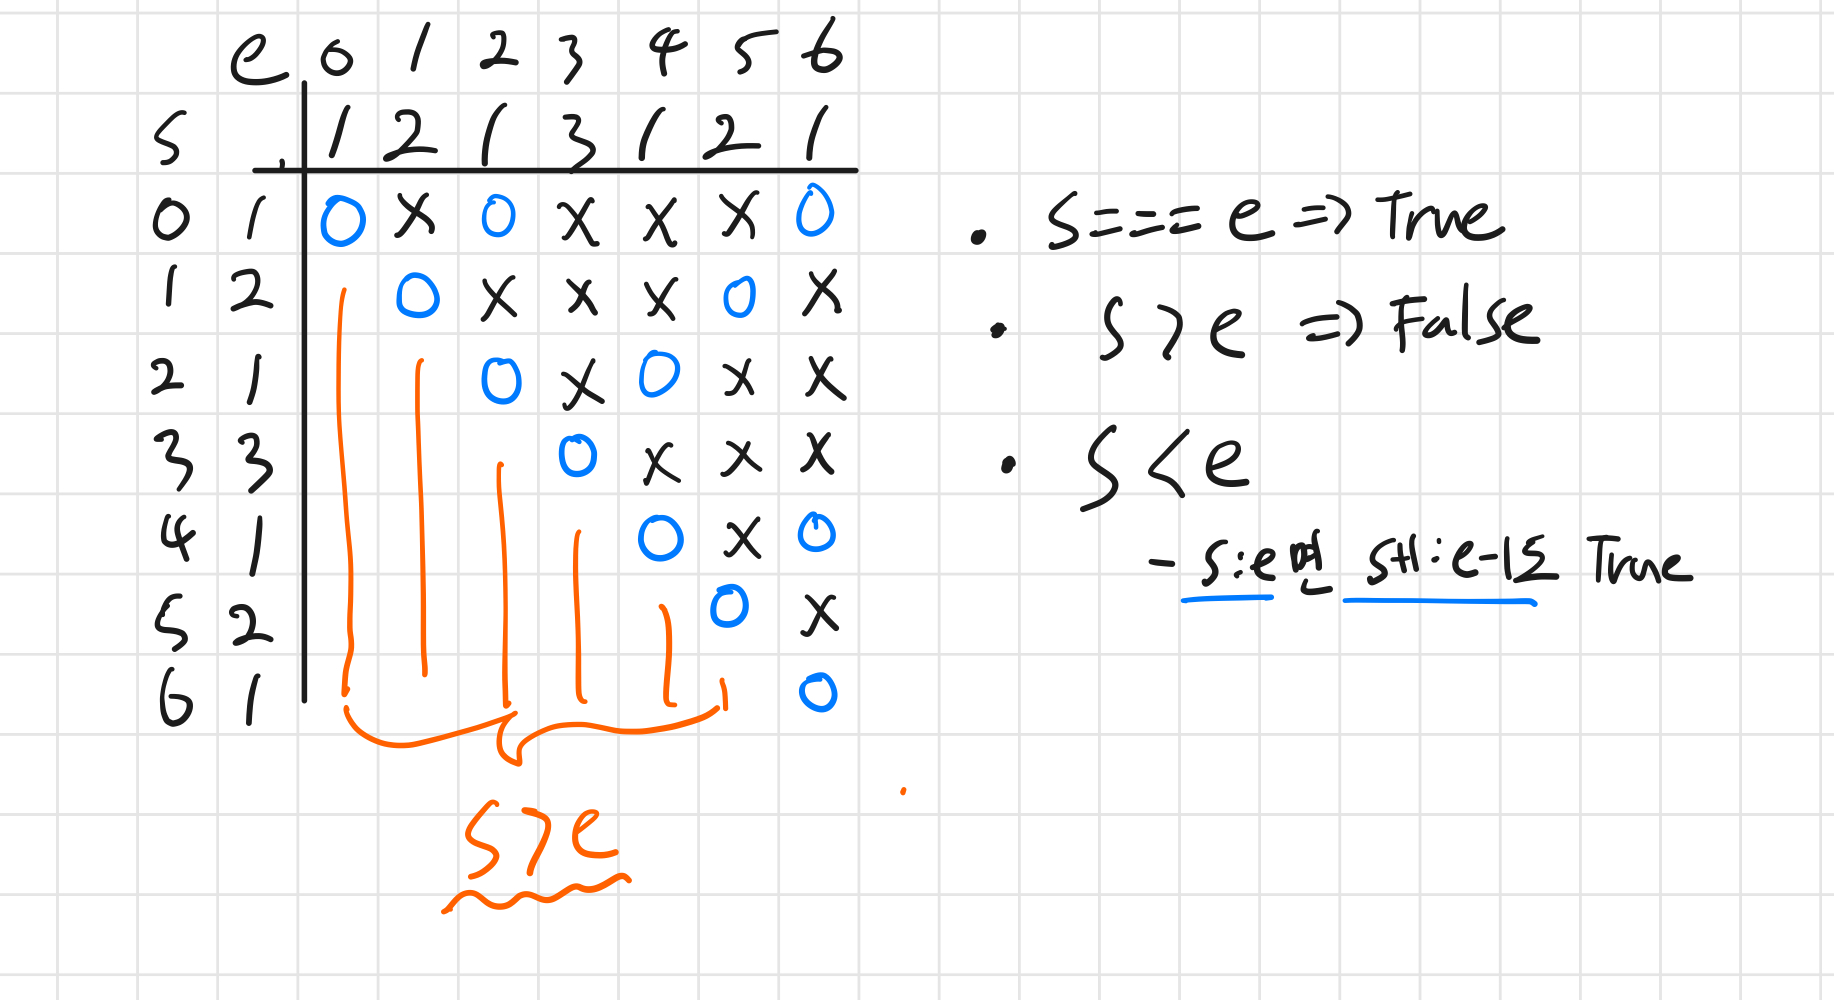 e 0 1 2 3 4 5 6
s 1 2 1 3 1 2 1
0 1 O X O X X X O
1 2 O X X X O X
2 1 O X O X X
3 3 O X X X
4 1 O X O
5 2 O X
6 1 O
s > e
• s === e => True
• s > e => False
• s < e
- s:e s+1:e-1도 True